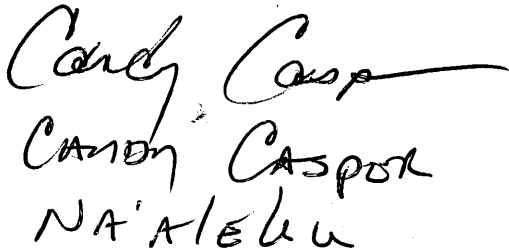 Candy Casp
CANDY CASPER
NA'ALEHU